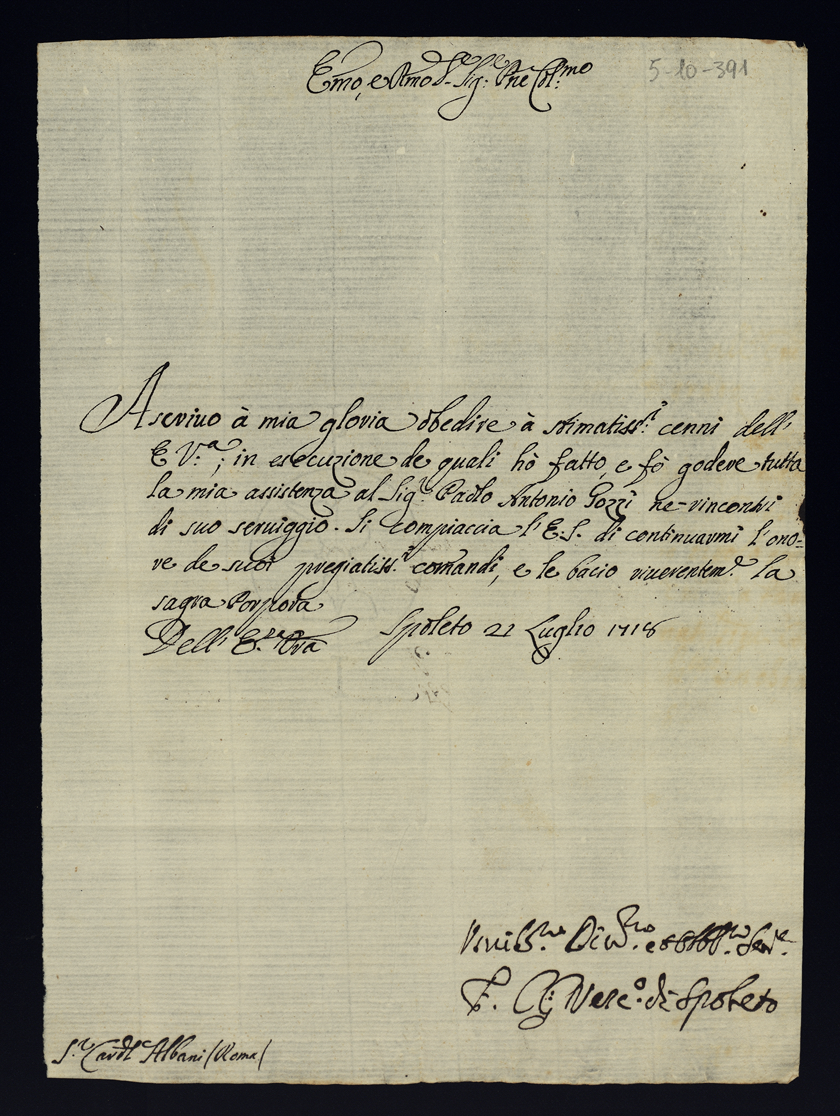 Emo, e Rmo Sig.re Pne Col:mo
5-10-391
Ascrivo à mia gloria obedire à stimatiss.i cenni dell'
E V.a; in esecuzione de quali hò fatto, e fò godere tutta
la mia assistenza al Sig.r Paolo Antonio Gozzi ne-rincontri
di suo serviggio. Si compiaccia l'E.S. di continuarmi l'ono=
re de suoi pregiatiss.i comandi, e le bacio riverentem.e la
sagra Porpora
Dell' E.za Vra Spoleto 21 Luglio 1718
Umilis.mo Div.mo Obbl.mo Ser.e
Vesc.o di Spoleto
S.r Cardl Albani (Roma)